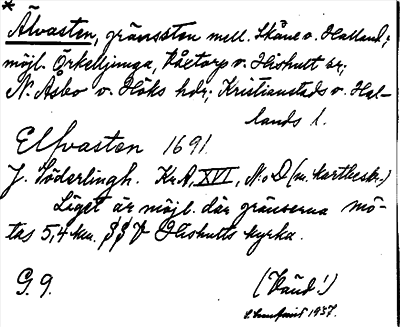 *
Älvasten, gränssten mell. Skåne o. Halland;
möjl. Örkelljunga, Våxtorp o. Hishult sr;
N. Åsbo o. Höks hdr; Kristianstads o. Hal-
lands l.
Elfvasten 1691.
J. Söderlingh. KrA, XVI, N:o D (m. kartbeskr.)
Läget är möjl. där gränserna mö-
tas 5,4 km. SSV Hishults kyrka.
G. 9.
(Vänd!)
1937.